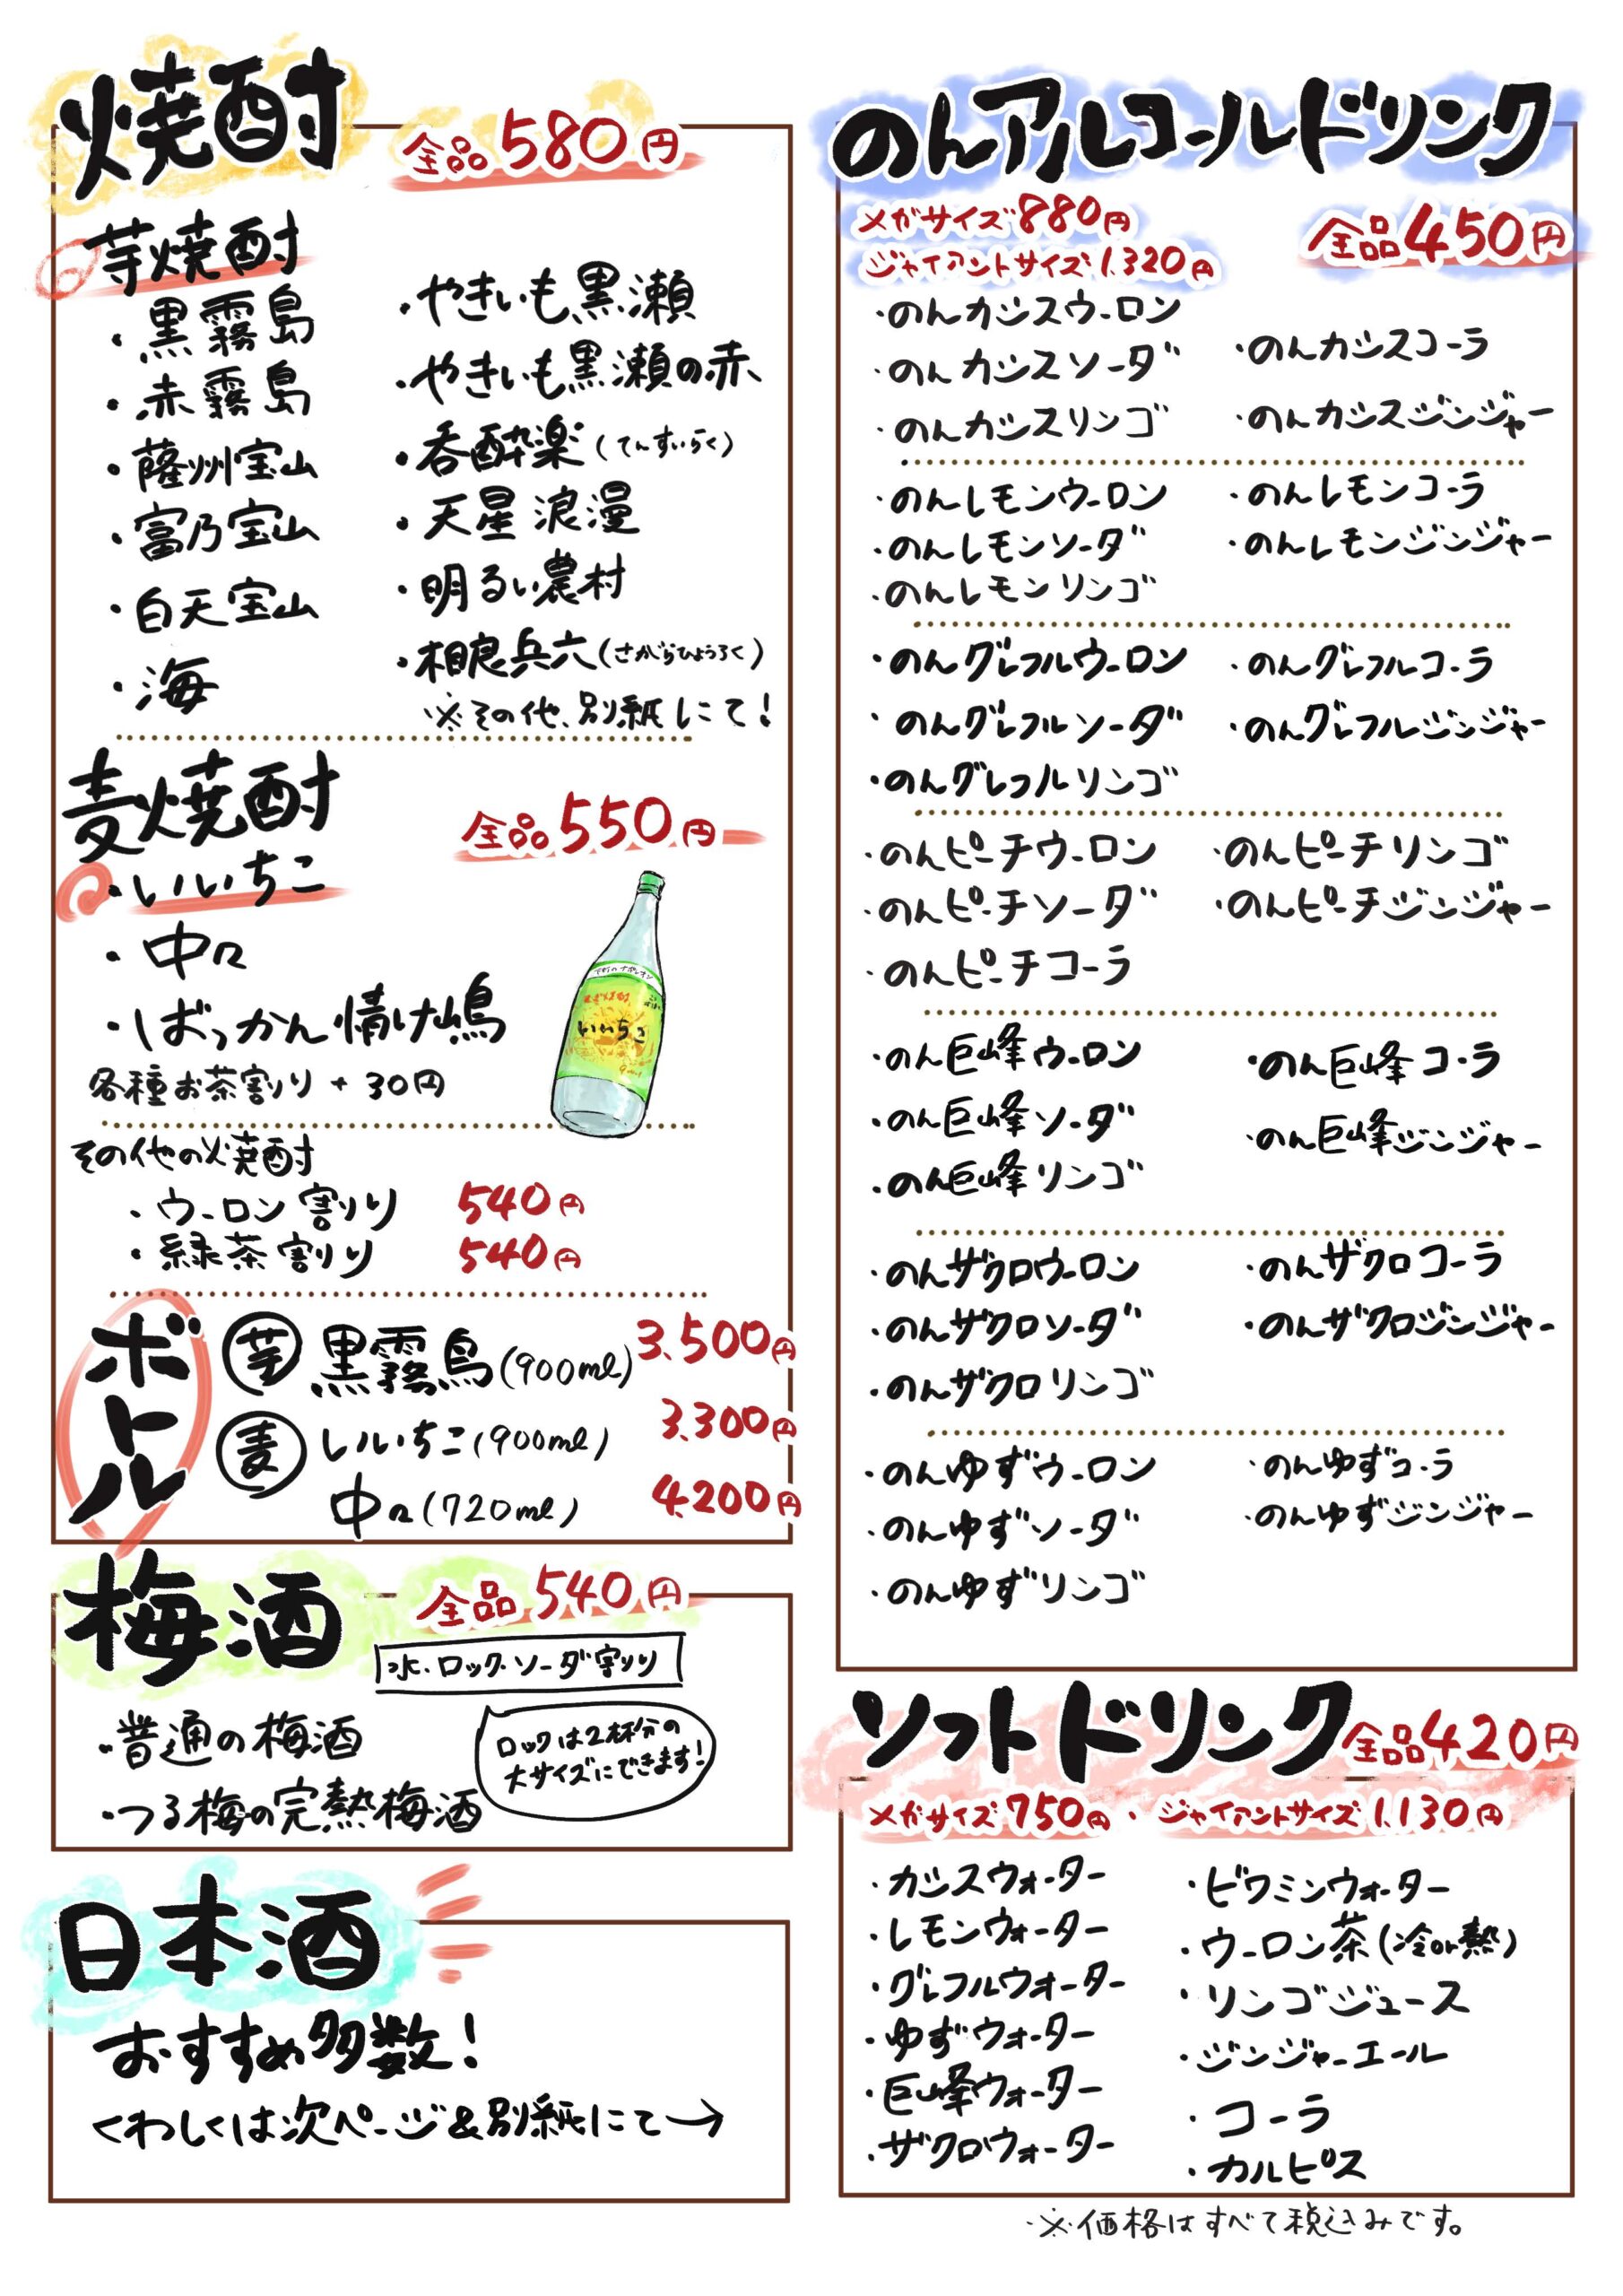 焼酎
全品580円
芋焼酎
・黒霧島
・赤霧島
・薩州宝山
・富乃宝山
・白天宝山
・海
・やきいも黒瀬
・やきいも黒瀬の赤
・呑酔楽(てんすいらく)
・天星浪漫
・明るい農村
・相良兵六(さがらひょうろく)
※その他、別紙にて!
麦焼酎
全品550円
・いいちこ
・中々
・ばっかん情け嶋
各種お茶割り+30円
下町のナポレオン
いいちこ
その他の焼酎
・ウーロン割り 540円
・緑茶割り 540円
ボトル
芋 黒霧島(900ml) 3,500円
麦 いいちこ(900ml) 3,300円
中々(720ml) 4,200円
梅酒
全品540円
水・ロック・ソーダ割り
・普通の梅酒
・つる梅の完熟梅酒
ロックは2杯分の
大サイズにできます!
日本酒
おすすめ多数!
くわしくは次ページ&別紙にて→
のんアルコールドリンク
メガサイズ880円
ジャイアントサイズ1,320円
全品450円
・のんカシスウーロン
・のんカシスソーダ
・のんカシスリンゴ
・のんカシスコーラ
・のんカシスジンジャー
・のんレモンウーロン
・のんレモンソーダ
・のんレモンリンゴ
・のんレモンコーラ
・のんレモンジンジャー
・のんグレフルウーロン
・のんグレフルソーダ
・のんグレフルリンゴ
・のんグレフルコーラ
・のんグレフルジンジャー
・のんピーチウーロン
・のんピーチソーダ
・のんピーチコーラ
・のんピーチリンゴ
・のんピーチジンジャー
・のん巨峰ウーロン
・のん巨峰ソーダ
・のん巨峰リンゴ
・のん巨峰コーラ
・のん巨峰ジンジャー
・のんザクロウーロン
・のんザクロソーダ
・のんザクロリンゴ
・のんザクロコーラ
・のんザクロジンジャー
・のんゆずウーロン
・のんゆずソーダ
・のんゆずリンゴ
・のんゆずコーラ
・のんゆずジンジャー
ソフトドリンク
全品420円
メガサイズ750円・ジャイアントサイズ1,130円
・カシスウォーター
・レモンウォーター
・グレフルウォーター
・ゆずウォーター
・巨峰ウォーター
・ザクロウォーター
・ビワミンウォーター
・ウーロン茶(冷or熱)
・リンゴジュース
・ジンジャーエール
・コーラ
・カルピス
※価格はすべて税込みです。